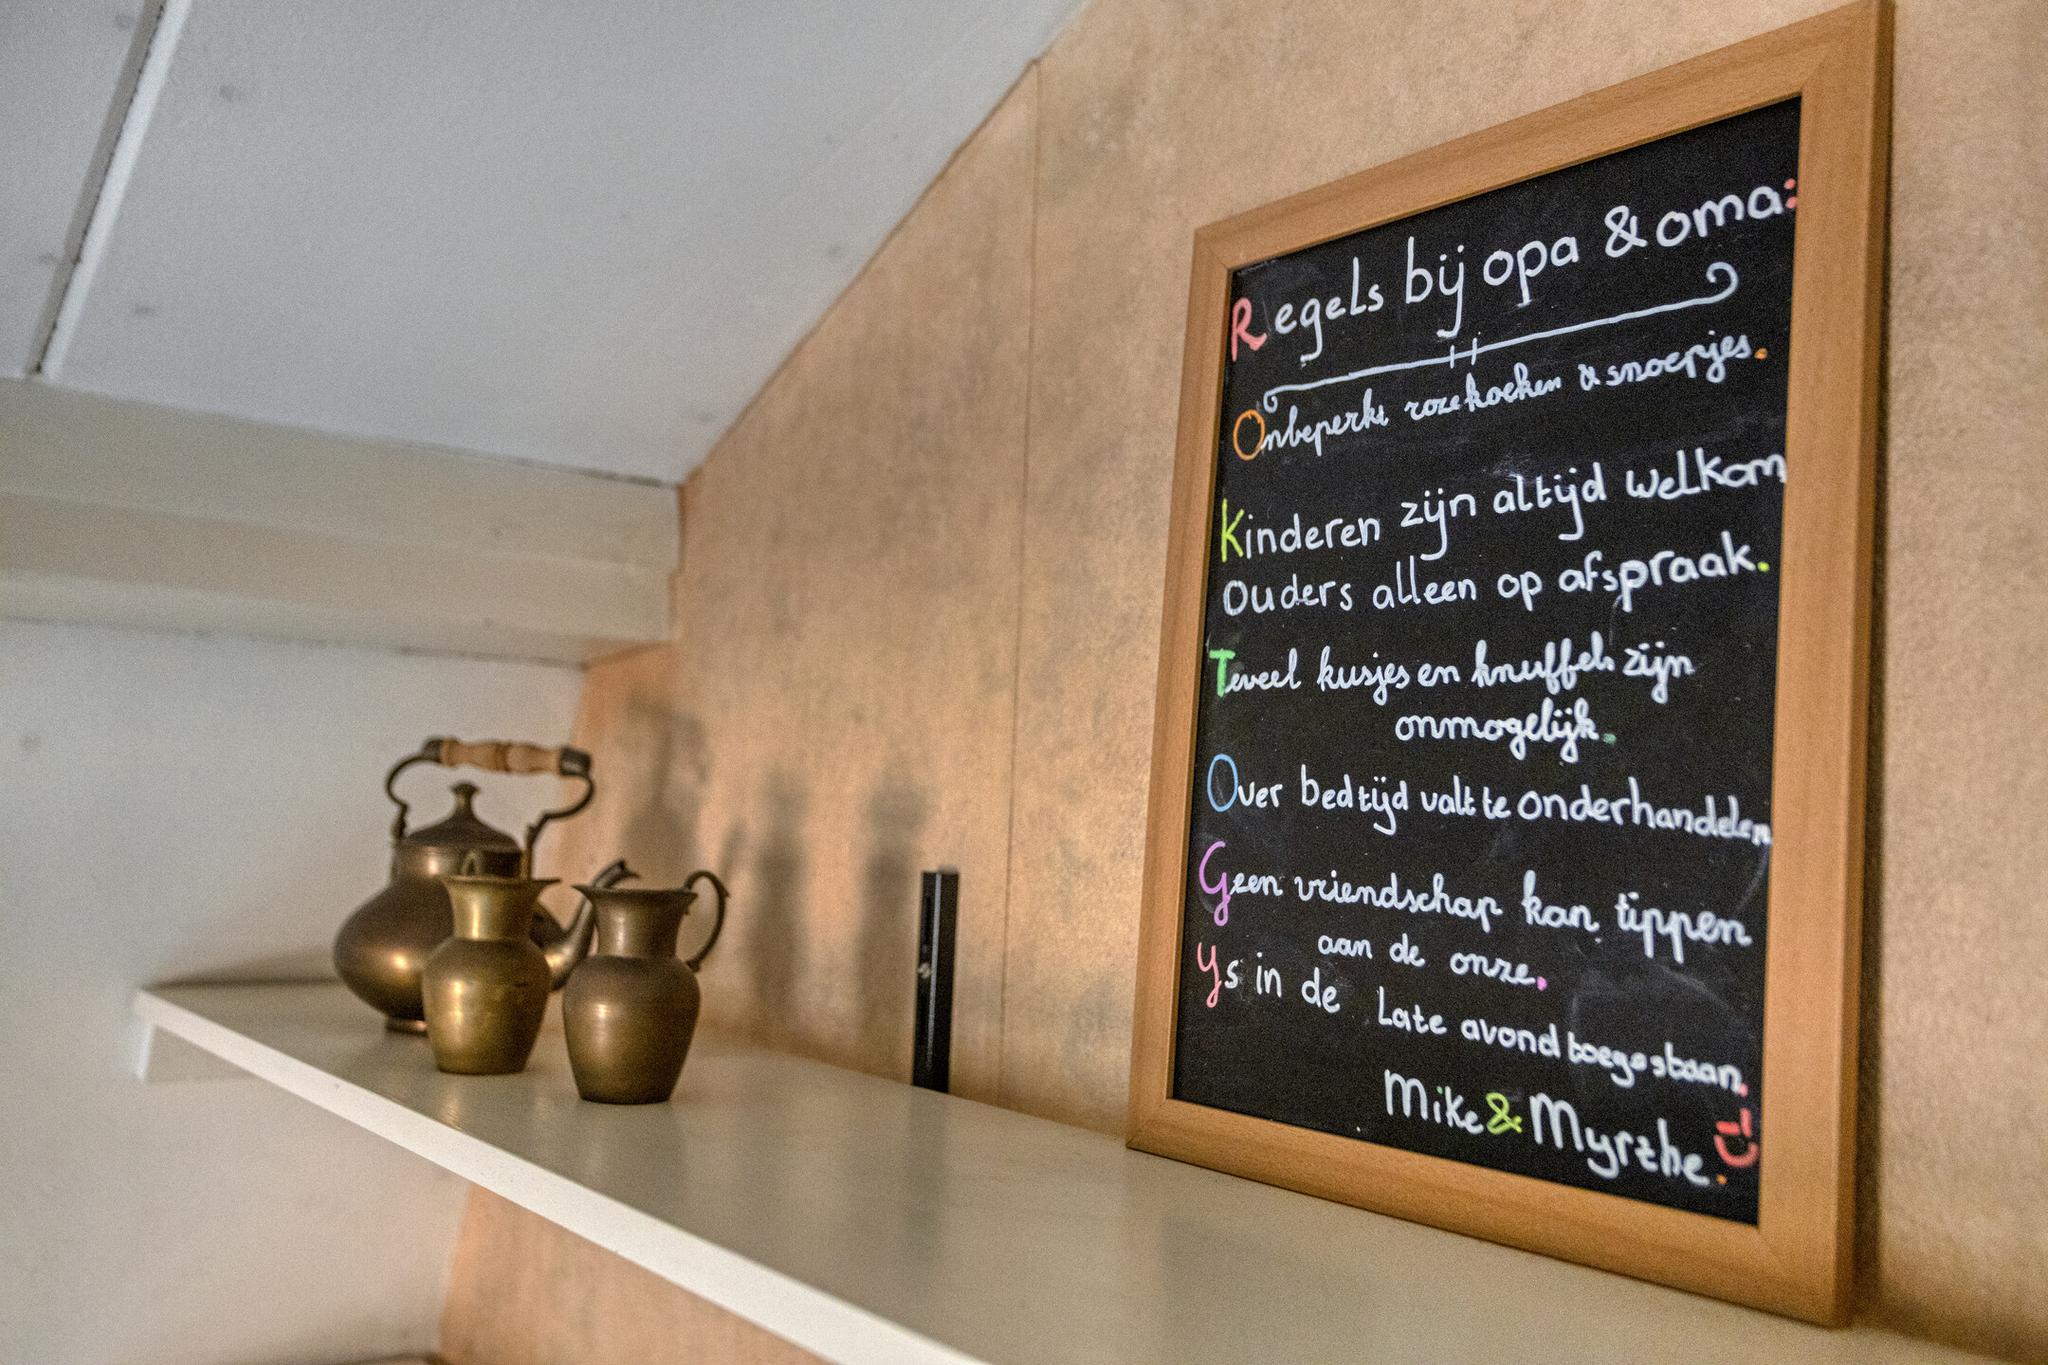 Regels bij opa & oma:
Onbeperkt rozekoeken & snoepjes.
Kinderen zijn altijd welkom
Ouders alleen op afspraak.
Teveel kusjes en knuffels zijn
onmogelijk.
Over bedtijd valt te onderhandelen
Geen vriendschap kan tippen
aan de onze.
Ys in de late avond toegestaan.
Mike & Myrthe.